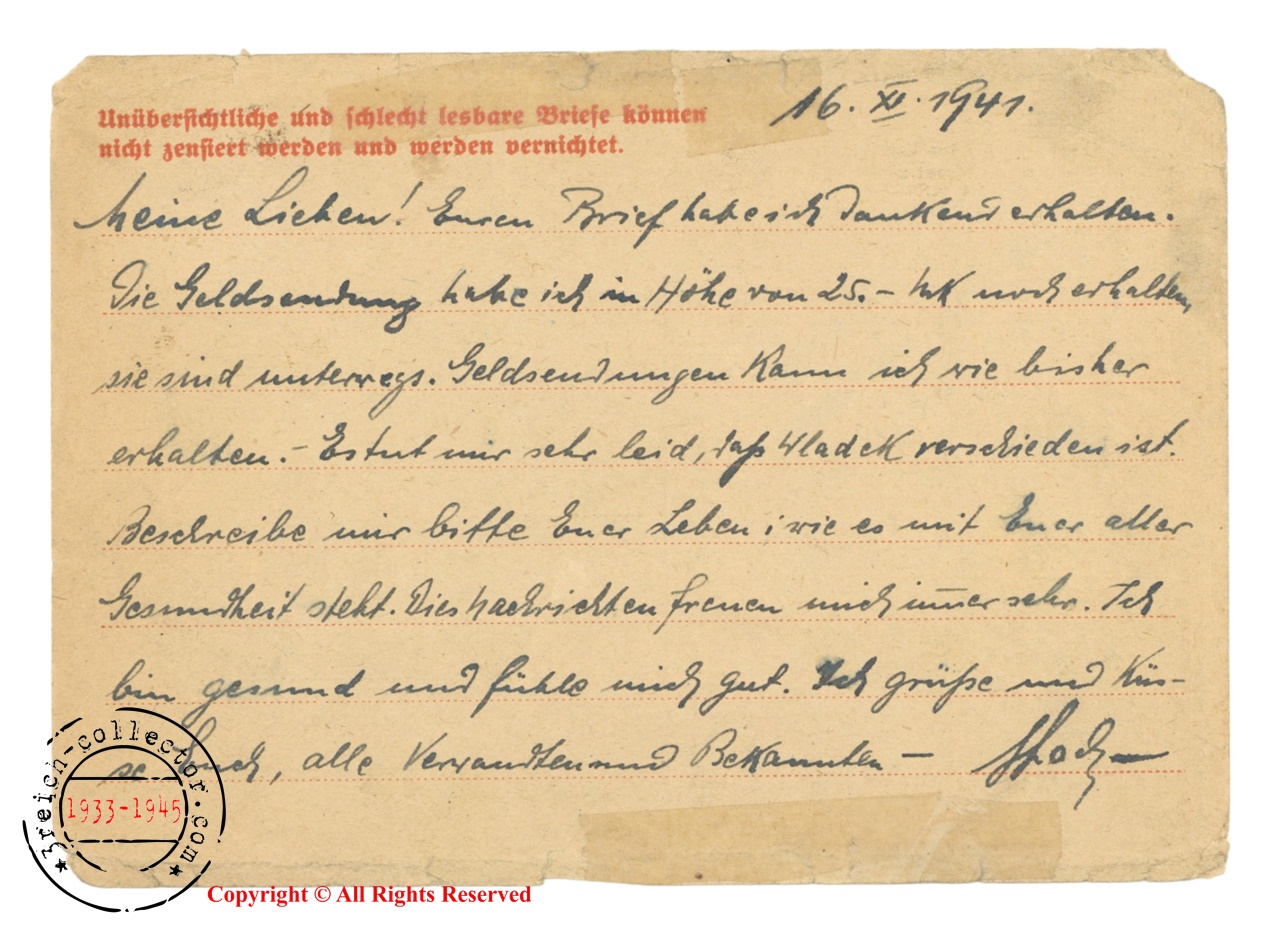 Unübersichtliche und schlecht lesbare Briefe können
nicht zensiert werden und werden vernichtet.
16. XI. 1941.
Meine Lieben! Euren Brief habe ich dankend erhalten.
Die Geldsendung habe ich in Höhe von 25.- Mk noch erhalten,
sie sind unterwegs. Geldsendungen kann ich wie bisher
erhalten. - Es tut mir sehr leid, daß Wladek verschieden ist.
Beschreibe mir bitte Euer Leben i wie es mit Euer aller
Gesundheit steht. Dies Nachrichten freuen mich im̅er sehr. Ich
bin gesund und fühle mich gut. Ich grüße und Küs-
se Euch, alle Verwandten und Bekannten -
3reich-collector.com
1933-1945
Copyright © All Rights Reserved